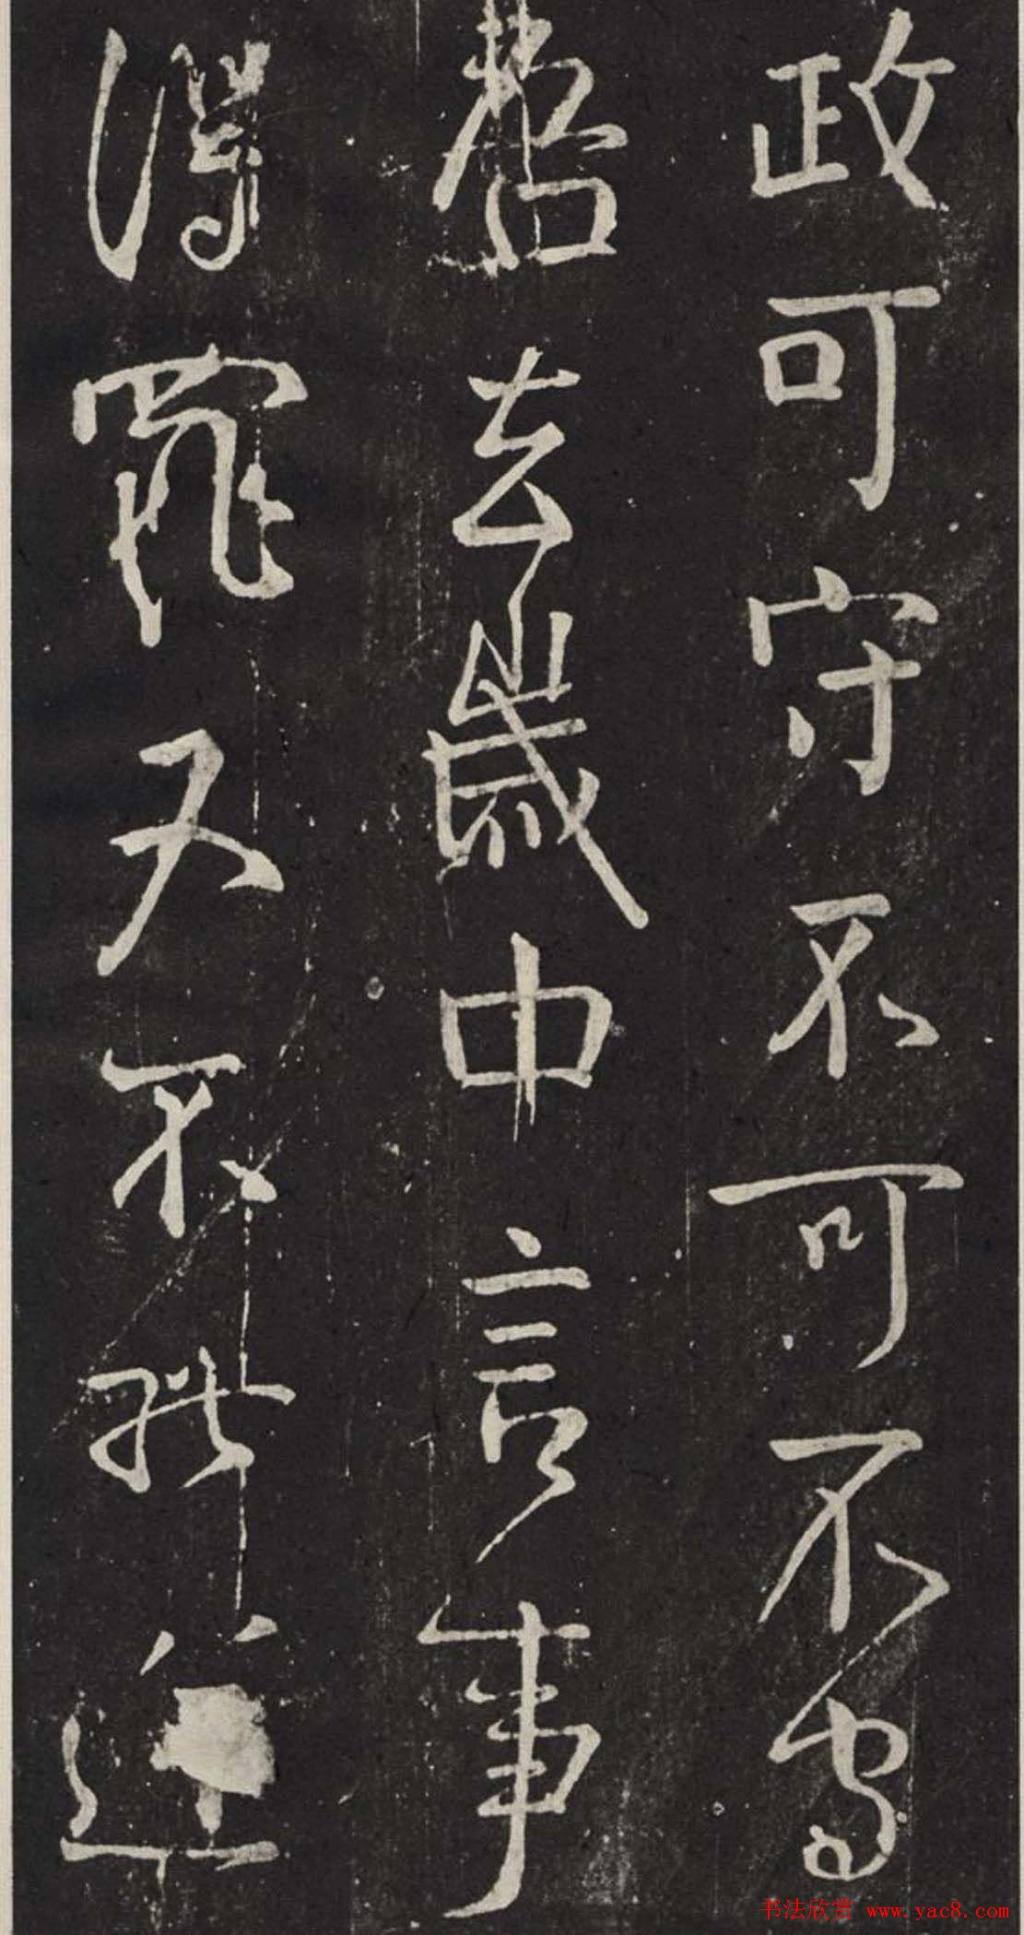 政可守不可不守
吾去歲中言事
得罪又不能逆
书法欣赏 www.yac8.com